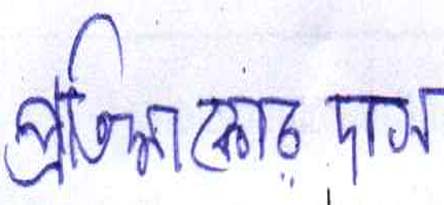 প্রতিমা কোচ দাস